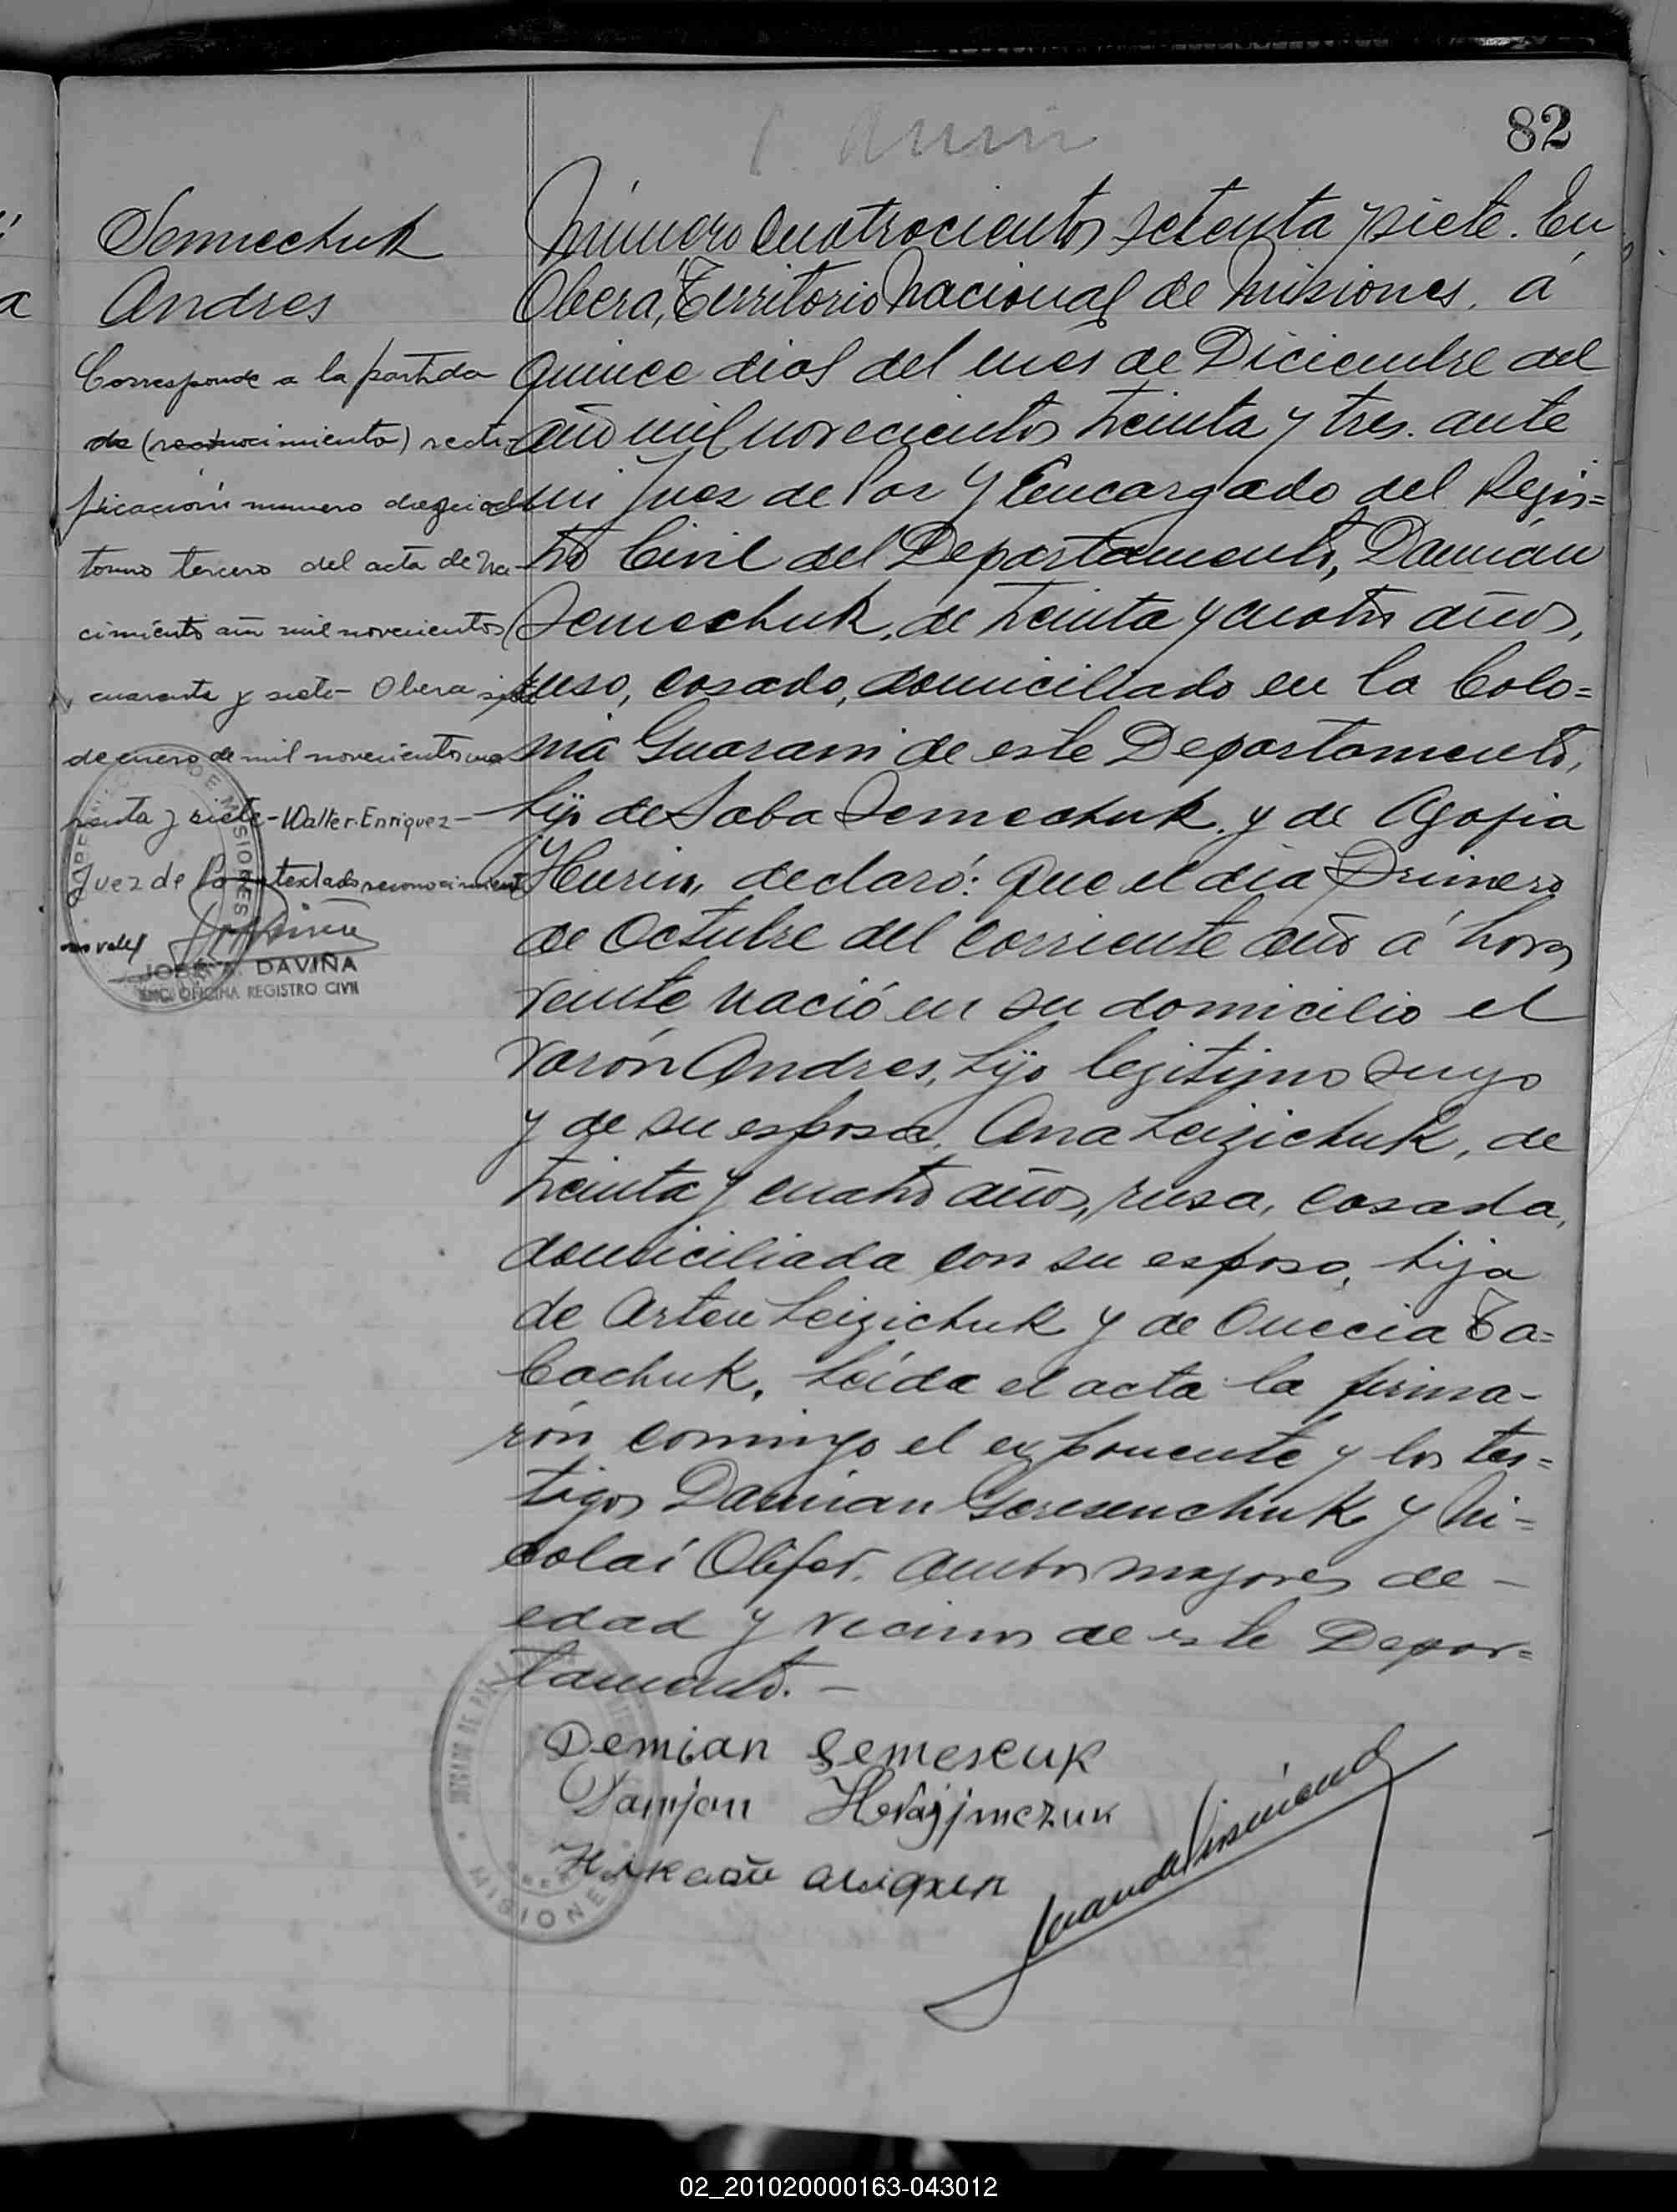 82
Semechuk
Andres
Corresponde a la partida
de (reconocimiento) recti-
ficación numero
tomo tercero del acta de na-
cimiento año mil novecientos
cuarenta y siete - Obera siete
de enero de mil novecientos cua
renta y siete - Walter Enriquez -
Juez de Paz testado reconocimiento
no vale
JOSÉ A. DAVIÑA
OFICINA REGISTRO CIVIL
MISIONES
Número cuatrocientos setenta y siete. En
Obera, Territorio Nacional de Misiones, á
quince dias del mes de Diciembre del
año mil novecientos treinta y tres. ante
mi Juez de Paz y Encargado del Regis=
tro Civil del Departamento, Damián
Semechuk, de treinta y cuatro años,
ruso, casado, domiciliado en la Colo=
nia Guarani de este Departamento,
hijo de Saba Semechuk y de Agafia
Hurin, declaró: Que el dia Primero
de Octubre del corriente año á horas
veinte nació en su domicilio el
varón Andres, hijo legitimo suyo
y de su esposa, Ana Leizichuk, de
treinta y cuatro años, rusa, casada,
domiciliada con su esposo, hija
de Arteu Leizichuk y de Ta=
cachuk. Leida el acta la firma-
rón conmigo el exponente y los tes=
tigos Damian Geresenchuk y Ni=
colai Olifer. Ambos mayores de -
edad y vecinos de este Depar=
tamento. -
Demian Semescuk
Damjan
JUZGADO DE PAZ
MISIONES
02_201020000163-043012